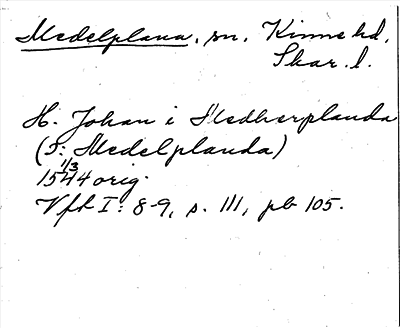 Medelplana, sn, Kinne hd,
Skar. l.
H. Johan i Medherplanda
(S: Medelplanda)
1/3
1544 orig.
Vfk I: 8-9, s. 111, pb 105.